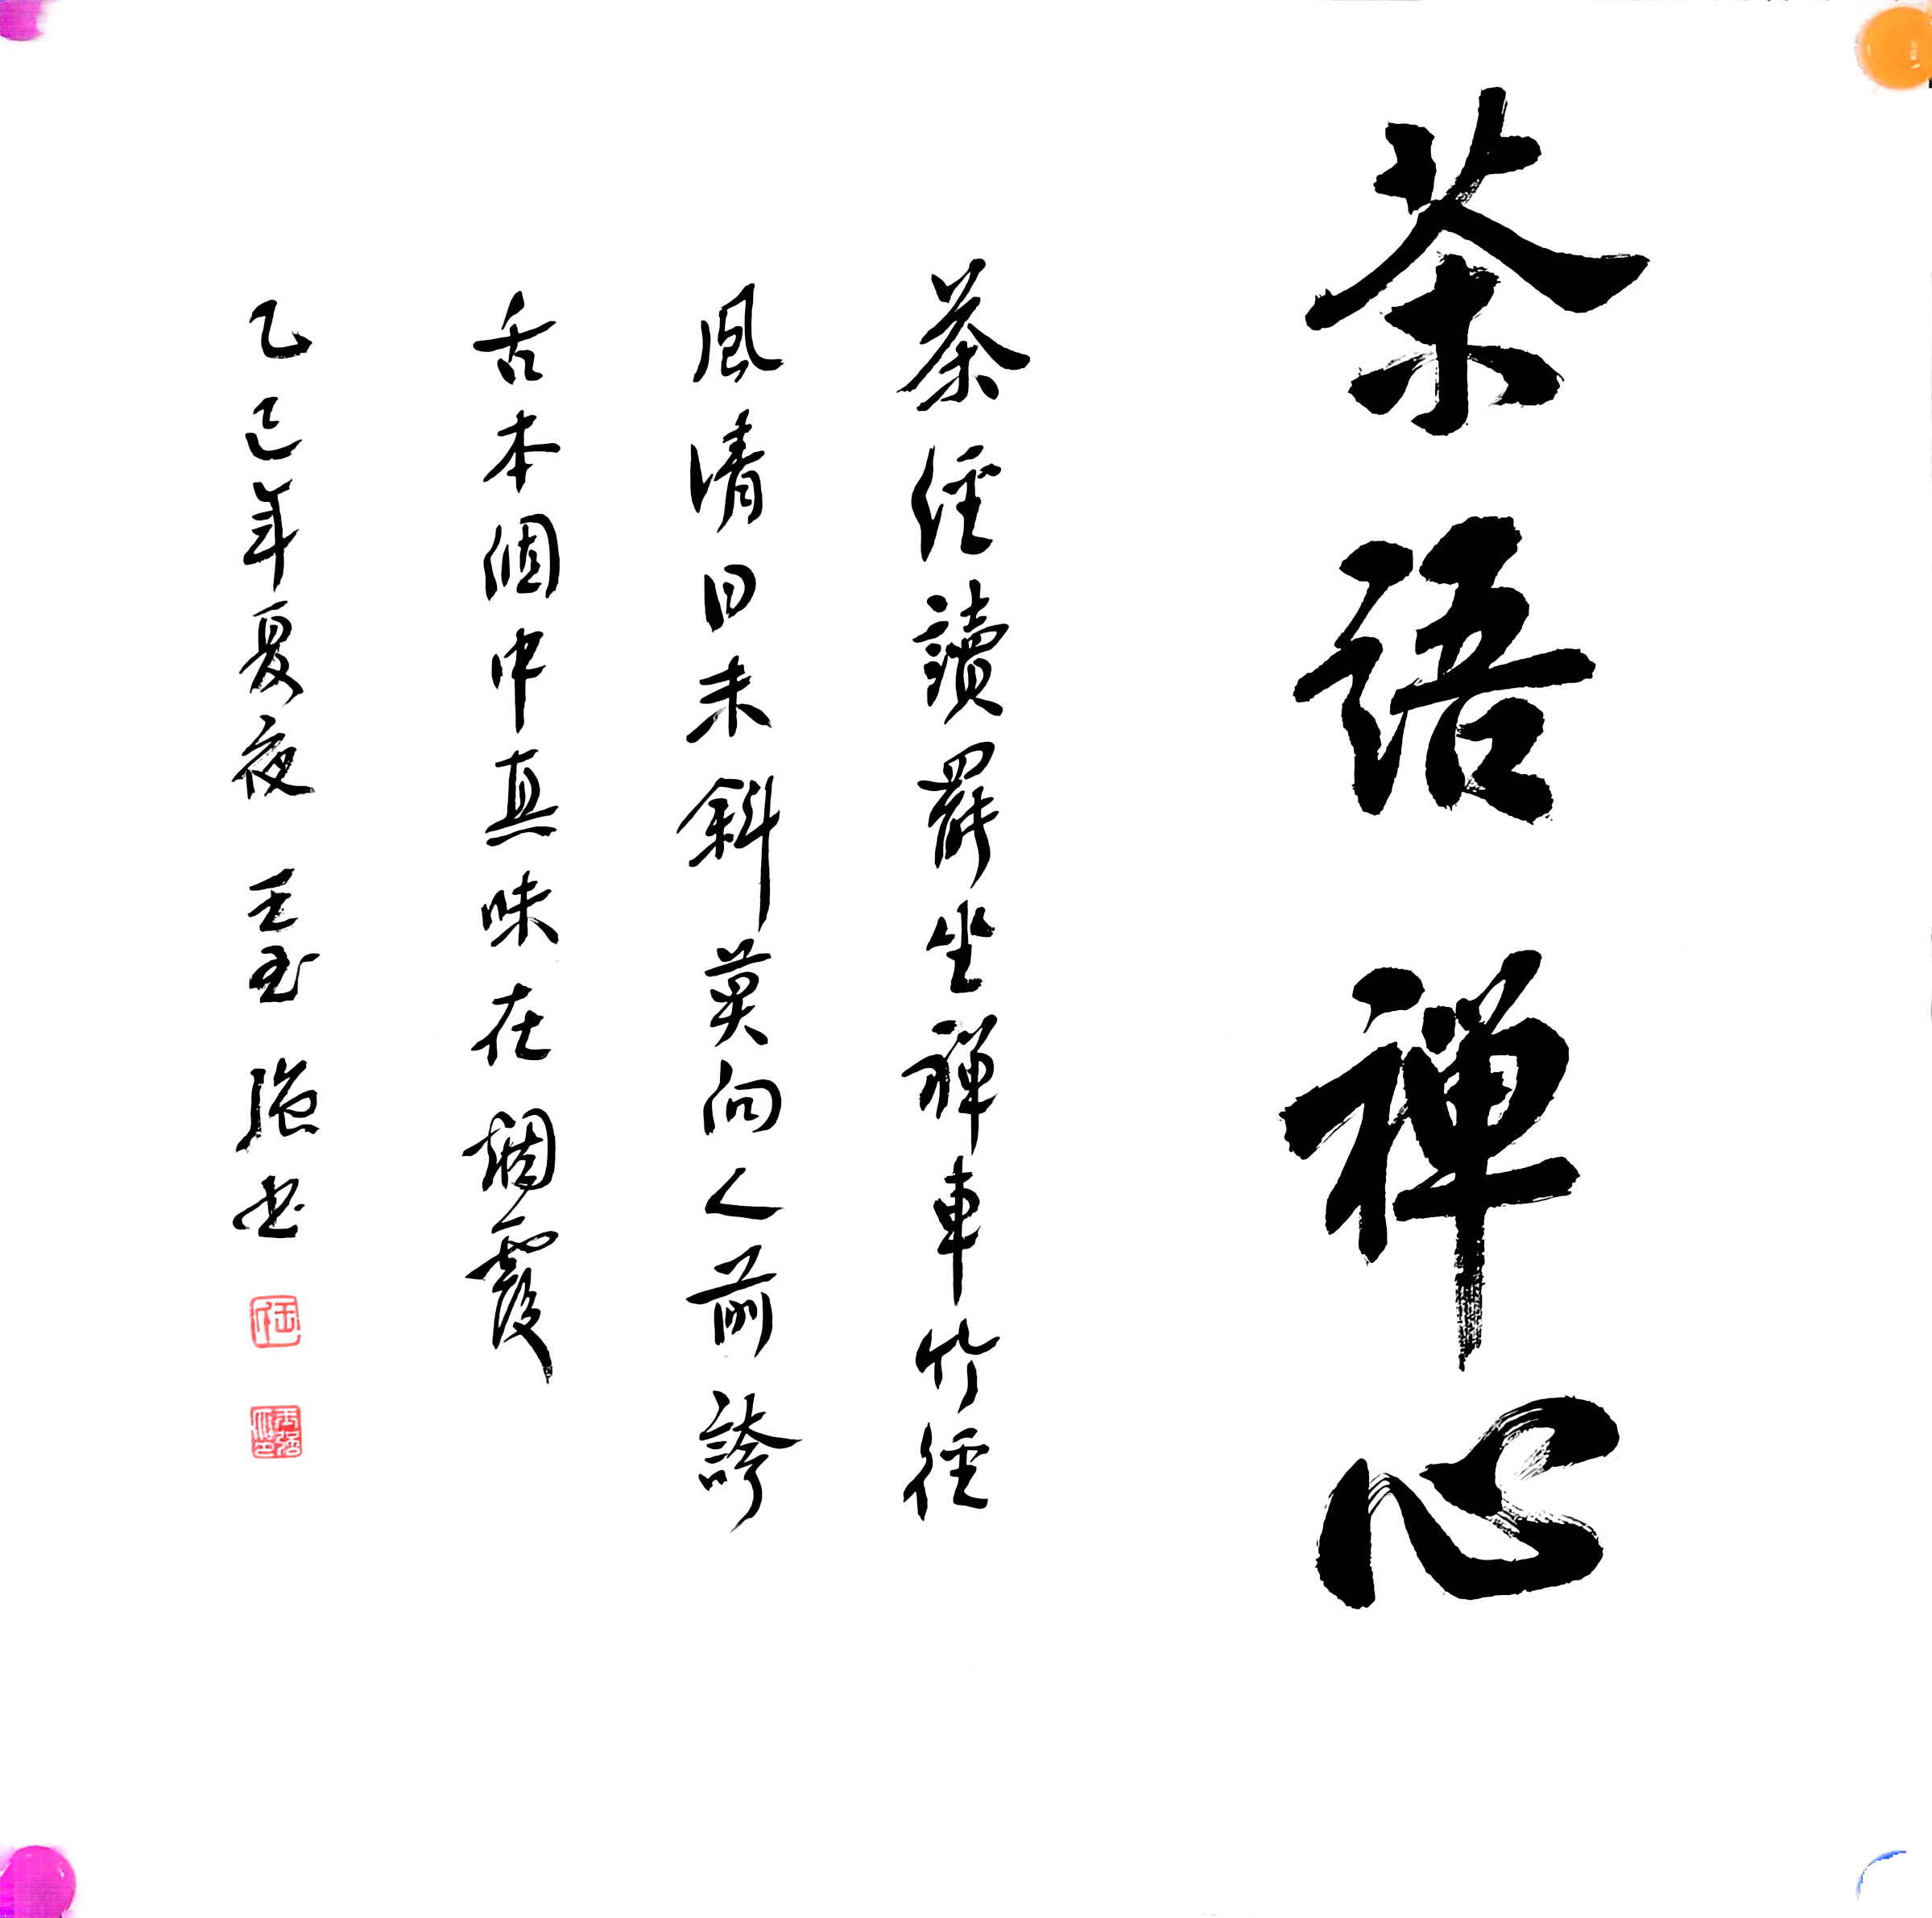 茶語禪心
茶經讀罷坐禪車竹徑
風清日未斜莫向人前誇
古本個中真味在烟霞
乙巳年夏夜 王玉隱书